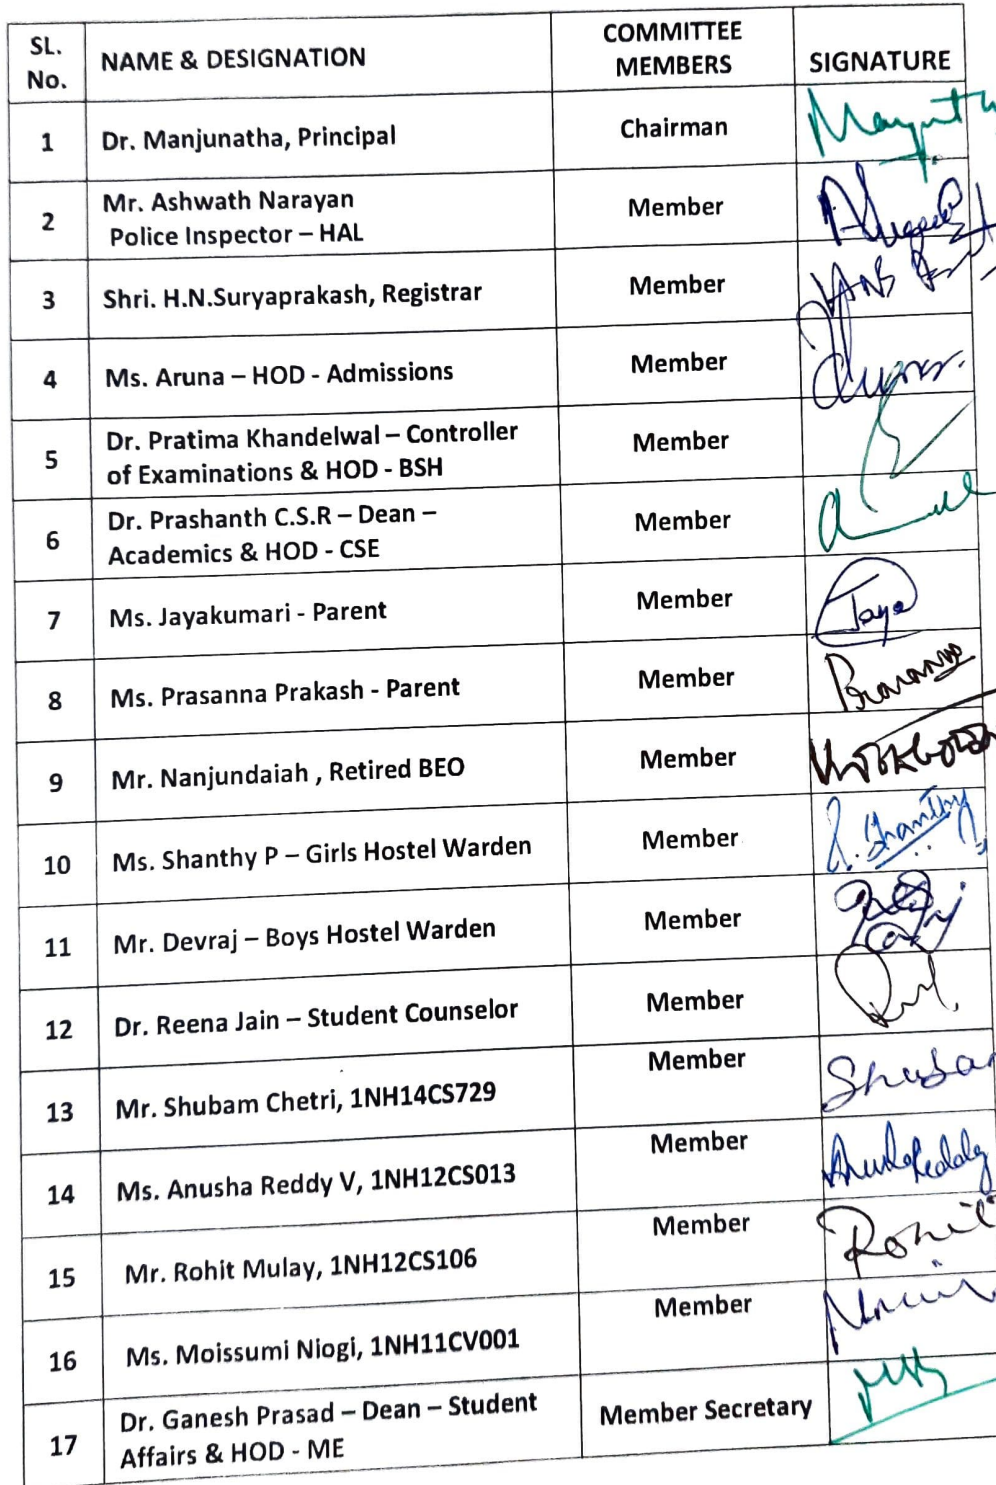 SL. No. NAME & DESIGNATION COMMITTEE MEMBERS SIGNATURE
1 Dr. Manjunatha, Principal Chairman
2 Mr. Ashwath Narayan Member
Police Inspector – HAL
3 Shri. H.N.Suryaprakash, Registrar Member
4 Ms. Aruna – HOD - Admissions Member
5 Dr. Pratima Khandelwal – Controller Member
of Examinations & HOD - BSH
6 Dr. Prashanth C.S.R – Dean – Member
Academics & HOD - CSE
7 Ms. Jayakumari - Parent Member Jaya
8 Ms. Prasanna Prakash - Parent Member
9 Mr. Nanjundaiah , Retired BEO Member
10 Ms. Shanthy P – Girls Hostel Warden Member Shanthy
11 Mr. Devraj – Boys Hostel Warden Member
12 Dr. Reena Jain – Student Counselor Member
13 Mr. Shubam Chetri, 1NH14CS729 Member
14 Ms. Anusha Reddy V, 1NH12CS013 Member
15 Mr. Rohit Mulay, 1NH12CS106 Member Rohit
16 Ms. Moissumi Niogi, 1NH11CV001 Member
17 Dr. Ganesh Prasad – Dean – Student Member Secretary
Affairs & HOD - ME